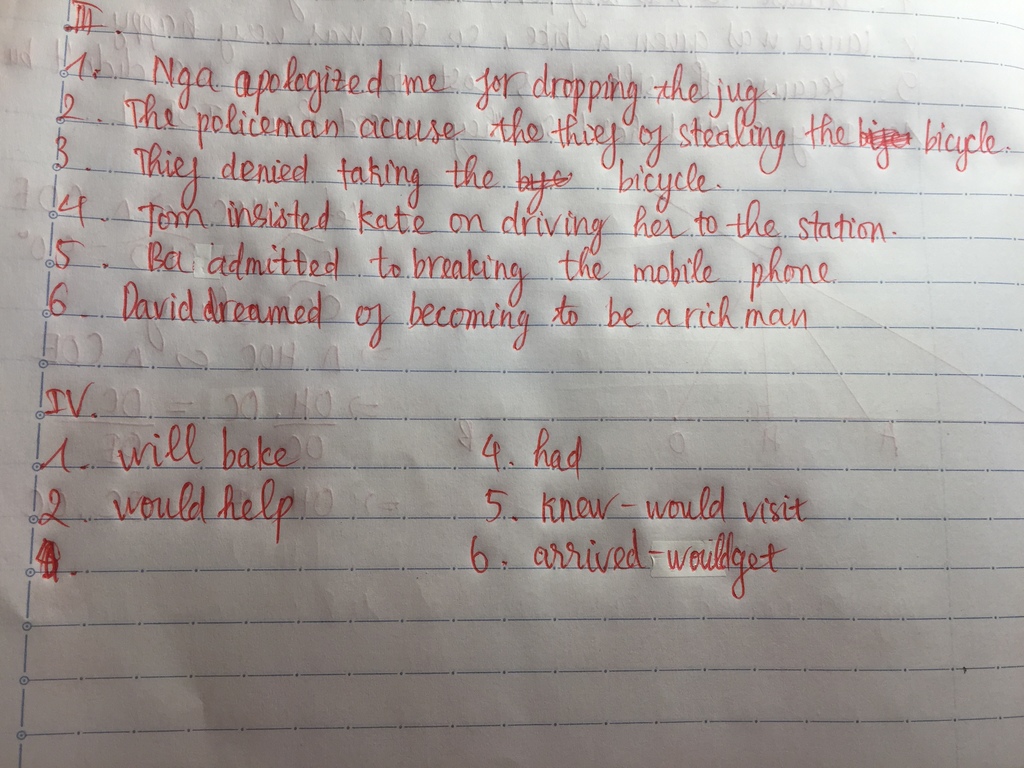 III.
1. Nga apologized me for dropping the jug
2. The policeman accuse the thief of stealing the bicycle.
3. Thief denied taking the bicycle.
4. Tom insisted kate on driving her to the station.
5. Ba admitted to breaking the mobile phone
6. David dreamed of becoming to be a rich man
IV.
1. will bake
2. would help
4. had
5. knew - would visit
6. arrived - would get